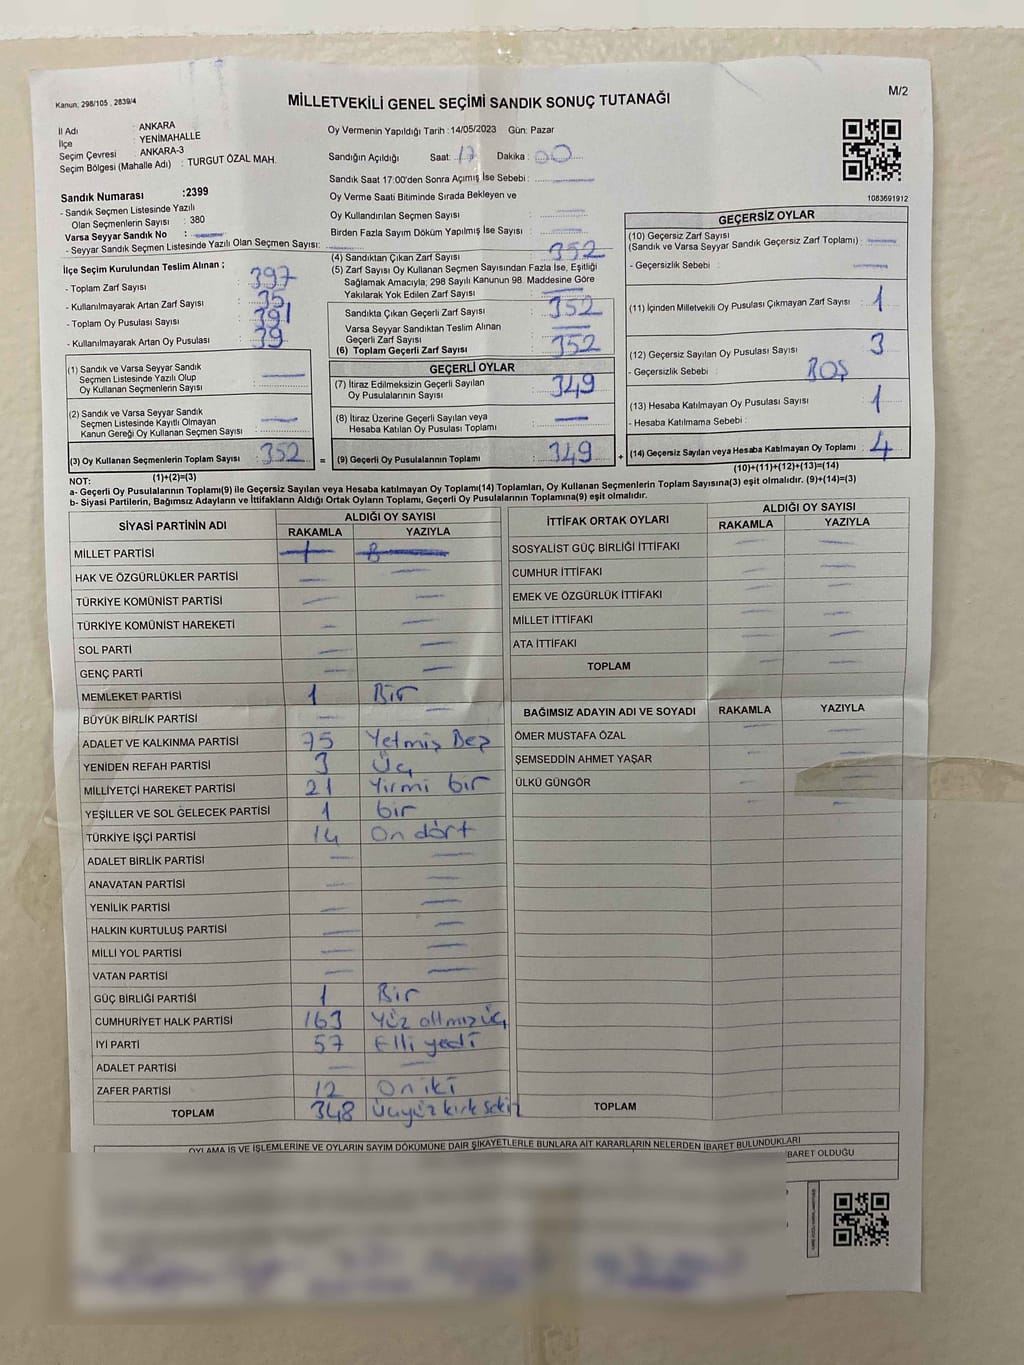 Kanun, 298/105 , 2839/4
M/2
MİLLETVEKİLİ GENEL SEÇİMİ SANDIK SONUÇ TUTANAĞI
İl Adı : ANKARA
İlçe : YENİMAHALLE
Seçim Çevresi : ANKARA-3
Seçim Bölgesi (Mahalle Adı) : TURGUT ÖZAL MAH.
Oy Vermenin Yapıldığı Tarih :14/05/2023 Gün: Pazar
Sandığın Açıldığı Saat: 17 Dakika : 00
Sandık Saat 17:00'den Sonra Açımış İse Sebebi :
Oy Verme Saati Bitiminde Sırada Bekleyen ve
Oy Kullandırılan Seçmen Sayısı
Birden Fazla Sayım Döküm Yapılmış İse Sayısı :
1083691912
Sandık Numarası :2399
- Sandık Seçmen Listesinde Yazılı
Olan Seçmenlerin Sayısı : 380
Varsa Seyyar Sandık No :
- Seyyar Sandık Seçmen Listesinde Yazılı Olan Seçmen Sayısı:
İlçe Seçim Kurulundan Teslim Alınan ;
- Toplam Zarf Sayısı : 397
- Kullanılmayarak Artan Zarf Sayısı : 35
- Toplam Oy Pusulası Sayısı : 391
- Kullanılmayarak Artan Oy Pusulası : 39
(1) Sandık ve Varsa Seyyar Sandık
Seçmen Listesinde Yazılı Olup
Oy Kullanan Seçmenlerin Sayısı :
(2) Sandık ve Varsa Seyyar Sandık
Seçmen Listesinde Kayıtlı Olmayan
Kanun Gereği Oy Kullanan Seçmen Sayısı :
(3) Oy Kullanan Seçmenlerin Toplam Sayısı : 352 =
(4) Sandıktan Çıkan Zarf Sayısı : 352
(5) Zarf Sayısı Oy Kullanan Seçmen Sayısından Fazla İse, Eşitliği
Sağlamak Amacıyla, 298 Sayılı Kanunun 98. Maddesine Göre
Yakılarak Yok Edilen Zarf Sayısı :
Sandıkta Çıkan Geçerli Zarf Sayısı : 352
Varsa Seyyar Sandıktan Teslim Alınan
Geçerli Zarf Sayısı :
(6) Toplam Geçerli Zarf Sayısı : 352
GEÇERLİ OYLAR
(7) İtiraz Edilmeksizin Geçerli Sayılan
Oy Pusulalarının Sayısı : 349
(8) İtiraz Üzerine Geçerli Sayılan veya
Hesaba Katılan Oy Pusulası Toplamı :
(9) Geçerli Oy Pusulalarının Toplamı : 349 +
GEÇERSİZ OYLAR
(10) Geçersiz Zarf Sayısı
(Sandık ve Varsa Seyyar Sandık Geçersiz Zarf Toplamı) :
- Geçersizlik Sebebi :
(11) İçinden Milletvekili Oy Pusulası Çıkmayan Zarf Sayısı : 1
(12) Geçersiz Sayılan Oy Pusulası Sayısı : 3
- Geçersizlik Sebebi : BOŞ
(13) Hesaba Katılmayan Oy Pusulası Sayısı : 1
- Hesaba Katılmama Sebebi :
(14) Geçersiz Sayılan veya Hesaba Katılmayan Oy Toplamı : 4
NOT: (1)+(2)=(3)
(10)+(11)+(12)+(13)=(14)
a- Geçerli Oy Pusulalarının Toplamı(9) ile Geçersiz Sayılan veya Hesaba katılmayan Oy Toplamı(14) Toplamları, Oy Kullanan Seçmenlerin Toplam Sayısına(3) eşit olmalıdır. (9)+(14)=(3)
b- Siyasi Partilerin, Bağımsız Adayların ve İttifakların Aldığı Ortak Oyların Toplamı, Geçerli Oy Pusulalarının Toplamına(9) eşit olmalıdır.
SİYASİ PARTİNİN ADI ALDIĞI OY SAYISI
RAKAMLA YAZIYLA
MİLLET PARTİSİ
HAK VE ÖZGÜRLÜKLER PARTİSİ
TÜRKİYE KOMÜNİST PARTİSİ
TÜRKİYE KOMÜNİST HAREKETİ
SOL PARTİ
GENÇ PARTİ
MEMLEKET PARTİSİ 1 Bir
BÜYÜK BİRLİK PARTİSİ
ADALET VE KALKINMA PARTİSİ 75 Yetmiş Beş
YENİDEN REFAH PARTİSİ 3 Üç
MİLLİYETÇİ HAREKET PARTİSİ 21 Yirmi bir
YEŞİLLER VE SOL GELECEK PARTİSİ 1 bir
TÜRKİYE İŞÇİ PARTİSİ 14 On dört
ADALET BİRLİK PARTİSİ
ANAVATAN PARTİSİ
YENİLİK PARTİSİ
HALKIN KURTULUŞ PARTİSİ
MİLLİ YOL PARTİSİ
VATAN PARTİSİ
GÜÇ BİRLİĞİ PARTİSİ 1 Bir
CUMHURİYET HALK PARTİSİ 163 Yüz altmış üç
İYİ PARTİ 57 Elli yedi
ADALET PARTİSİ
ZAFER PARTİSİ 12 On iki
TOPLAM 348 Üçyüz kırk sekiz
İTTİFAK ORTAK OYLARI ALDIĞI OY SAYISI
RAKAMLA YAZIYLA
SOSYALİST GÜÇ BİRLİĞİ İTTİFAKI
CUMHUR İTTİFAKI
EMEK VE ÖZGÜRLÜK İTTİFAKI
MİLLET İTTİFAKI
ATA İTTİFAKI
TOPLAM
BAĞIMSIZ ADAYIN ADI VE SOYADI RAKAMLA YAZIYLA
ÖMER MUSTAFA ÖZAL
ŞEMSEDDİN AHMET YAŞAR
ÜLKÜ GÜNGÖR
TOPLAM
OYLAMA İŞ VE İŞLEMLERİNE VE OYLARIN SAYIM DÖKÜMÜNE DAİR ŞİKAYETLERLE BUNLARA AİT KARARLARIN NELERDEN İBARET BULUNDUKLARI
İBARET OLDUĞU